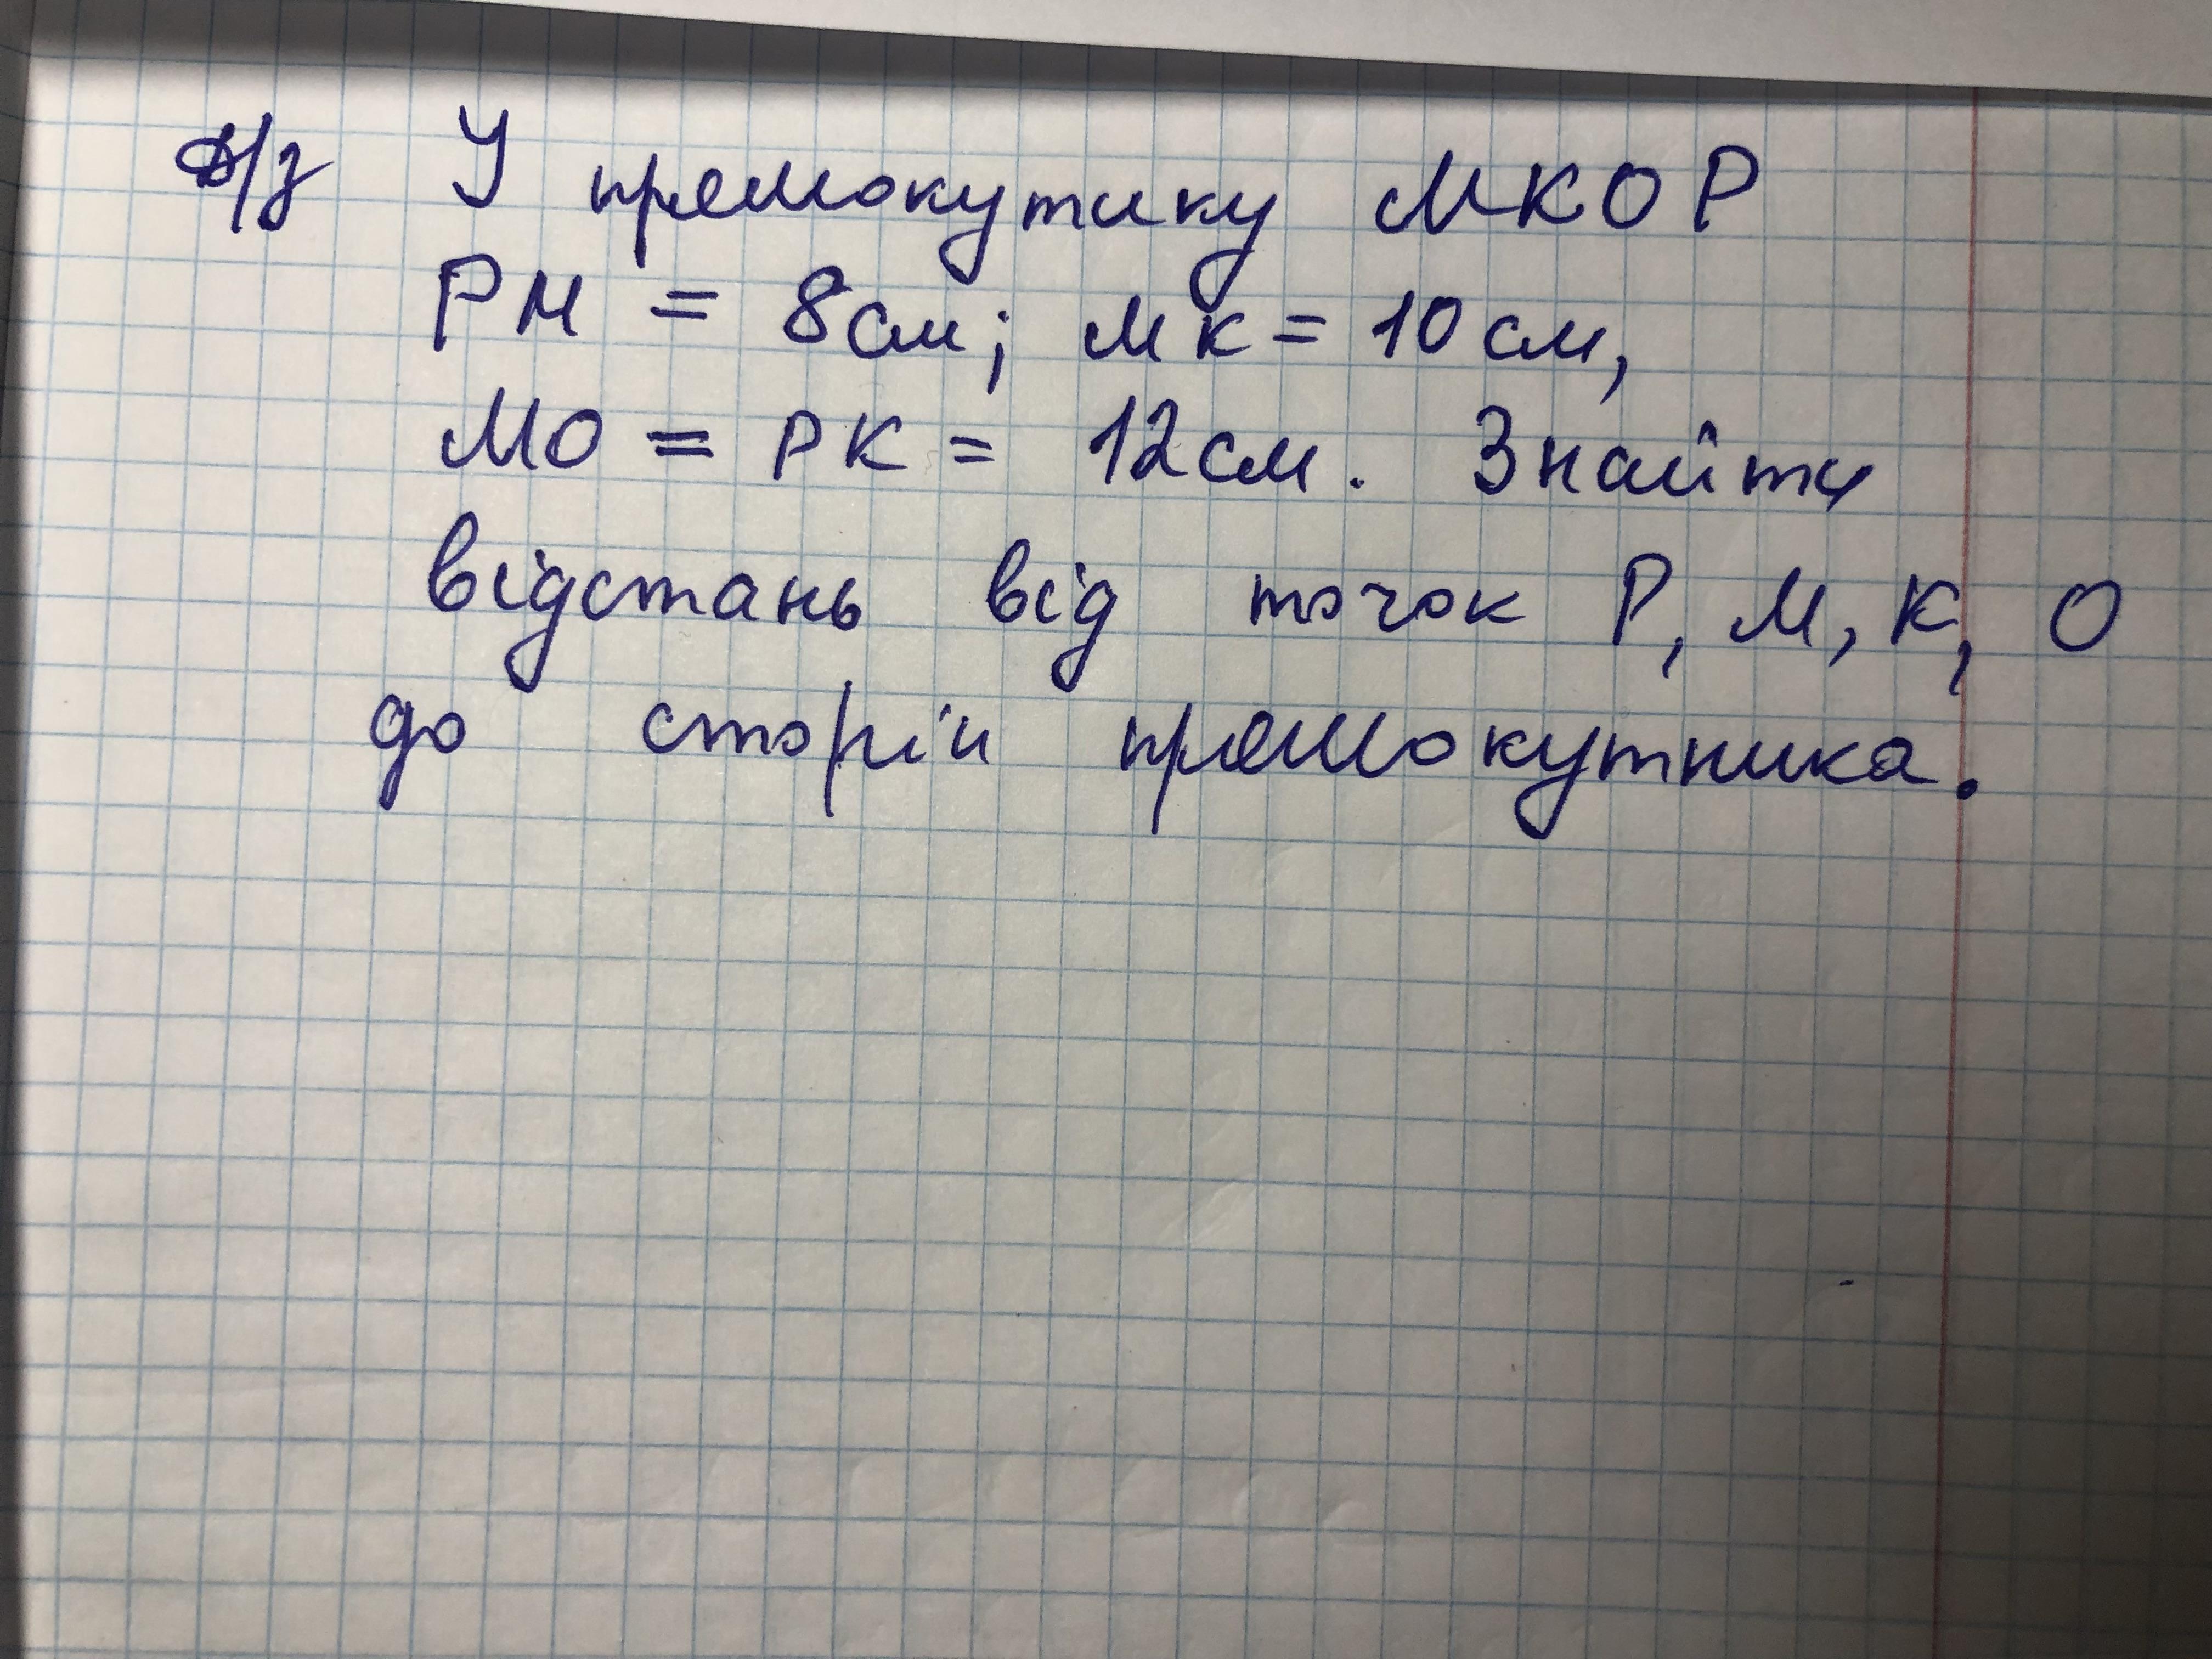 Д/з У прямокутику МКОР
РМ = 8см; МК = 10 см,
МО = РК = 12см. Знайти
відстань від точок Р, М, К, О
до сторін прямокутника.